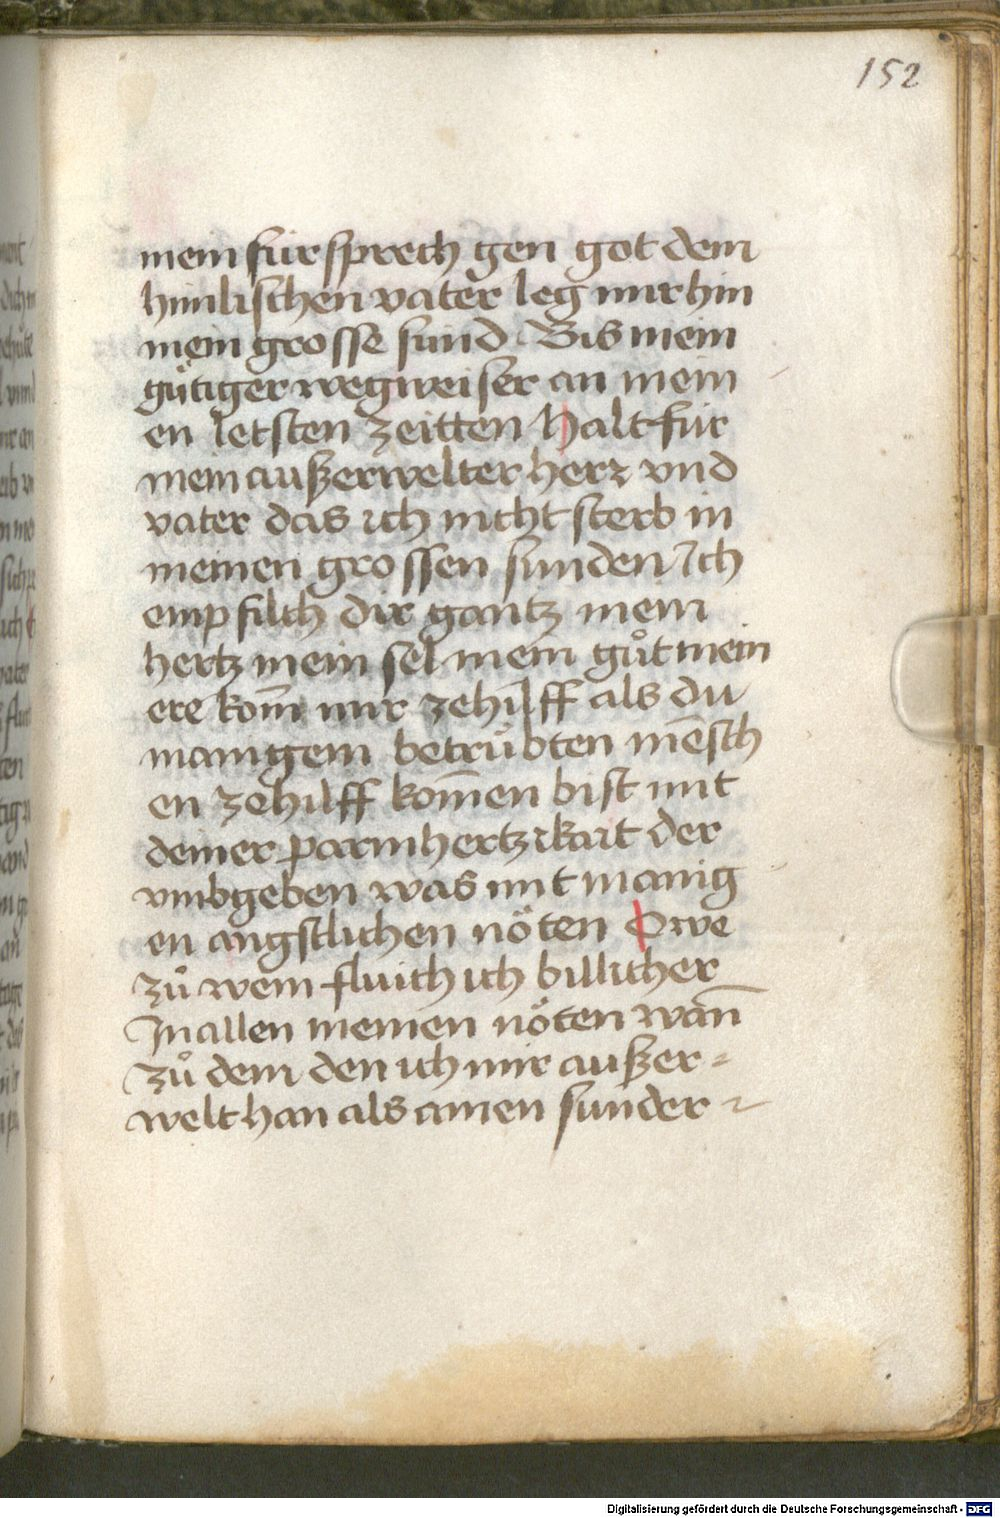 152
mein fürsprech gen got dem
himlischen vater leg mir hin
mein grosse sund Bis mein
gütiger wegweiser an mein
en letsten zeitten halt für
mein außerwelter herr vnd
vater das ich nicht sterb in
meinen grossen sunden Ich
empfilch dir gantz mein
hertz mein sel mein gůt mein
ere kom̄ mir zehilff als du
manigem betrübten mēsch
en zehilff kom̄en bist mit
deiner parmhertzikait der
vmbgeben was mit manig
en angstlichen nöten Owe
zů wem fluich ich billicher
In allen meinen nöten wan̄
zů dem den ich mir außer=
welt han als ainen sunder
Digitalisierung gefördert durch die Deutsche Forschungsgemeinschaft - DFG